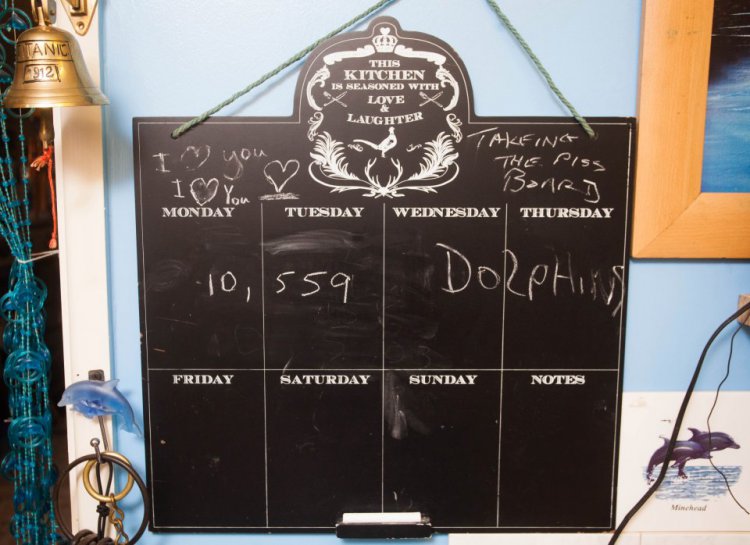 TITANIC
1912
THIS
KITCHEN
IS SEASONED WITH
LOVE
&
LAUGHTER
I ♡ you
I ♡ You ♡
TAKEING
THE PISS
BOARD
MONDAY TUESDAY WEDNESDAY THURSDAY
10,559 DOLPHINS
FRIDAY SATURDAY SUNDAY NOTES
Minehead